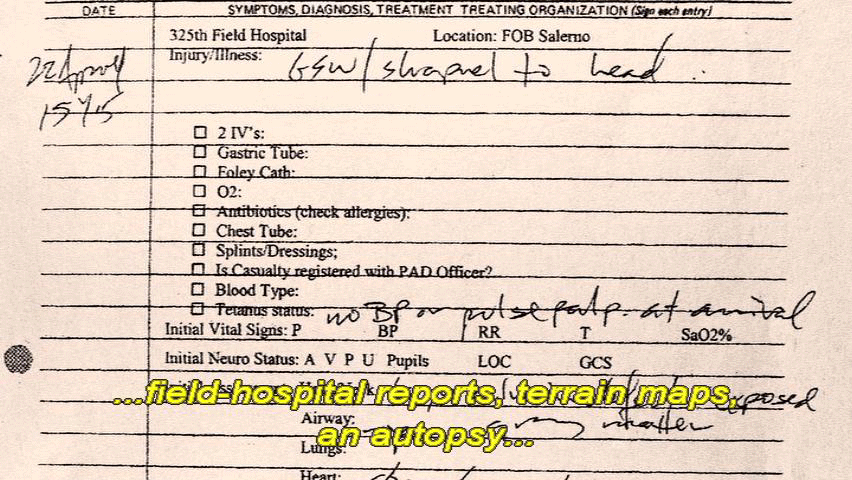 DATE SYMPTOMS, DIAGNOSIS, TREATMENT TREATING ORGANIZATION (Sign each entry)
325th Field Hospital Location: FOB Salerno
Injury/Illness: GSW/ shrapnel to head
22 April
1545
2 IV's:
Gastric Tube:
Foley Cath:
O2:
Antibiotics (check allergies):
Chest Tube:
Splints/Dressings;
Is Casualty registered with PAD Officer?
Blood Type:
Tetanus status: no BP or pulse palp. at arrival
Initial Vital Signs: P BP RR T SaO2%
Initial Neuro Status: A V P U Pupils LOC GCS
exposed
...field-hospital reports, terrain maps,
Airway: matter
an autopsy...
Lungs:
Heart: